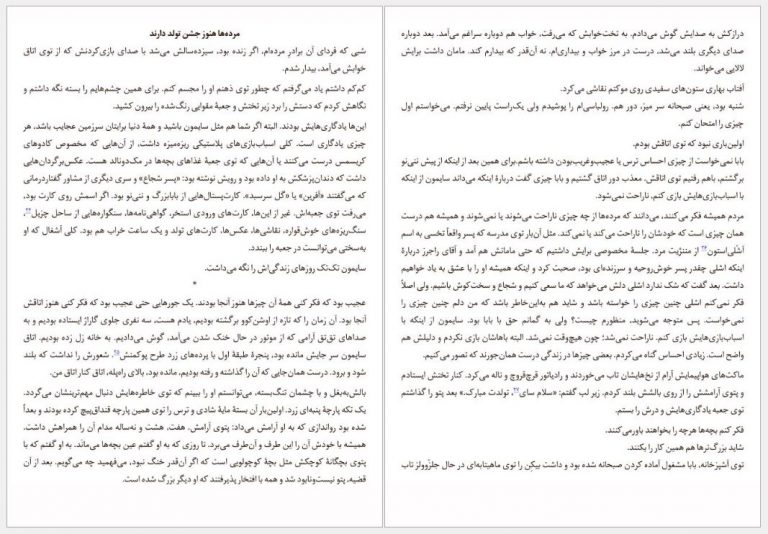 مرده‌ها هنوز جشن تولد دارند
شبی که فردای آن برادرِ مرده‌ام، اگر زنده بود، سیزده‌سالش می‌شد با صدای بازی‌کردنش که از توی اتاق
خوابش می‌آمد، بیدار شدم.
کم‌کم داشتم یاد می‌گرفتم که چطور توی ذهنم او را مجسم کنم. برای همین چشم‌هایم را بسته نگه داشتم و
نگاهش کردم که دستش را برد زیر تختش و جعبهٔ مقوایی رنگ‌شده را بیرون کشید.
این‌ها یادگاری‌هایش بودند. البته اگر شما هم مثل سایمون باشید و همهٔ دنیا برایتان سرزمین عجایب باشد، هر
چیزی یادگاری است. کلی اسباب‌بازی‌های پلاستیکی ریزه‌میزه داشت، از آن‌هایی که مخصوص کادوهای
کریسمس درست می‌کنند یا آن‌هایی که توی جعبهٔ غذاهای بچه‌ها در مک‌دونالد هست. عکس‌برگردان‌هایی
داشت که دندان‌پزشکش به او داده بود و رویش نوشته بود: «پسر شجاع» و سری دیگری از مشاور گفتاردرمانی
که می‌گفتند «آفرین» یا «گل سرسبد». کارت‌پستال‌هایی از بابابزرگ و ننی‌نو بود. اگر اسمش روی کارت بود،
می‌رفت توی جعبه‌اش. غیر از این‌ها، کارت‌های ورودی استخر، گواهی‌نامه‌ها، سنگواره‌هایی از ساحل چزیل۲۴،
سنگ‌ریزه‌های خوش‌قواره، نقاشی‌ها، عکس‌ها، کارت‌های تولد و یک ساعت خراب هم بود. کلی آشغال که او
به‌سختی می‌توانست در جعبه را ببندد.
سایمون تک‌تک روزهای زندگی‌اش را نگه می‌داشت.
*
عجیب بود که فکر کنی همهٔ آن چیزها هنوز آنجا بودند. یک جورهایی حتی عجیب بود که فکر کنی هنوز اتاقش
آنجا بود. آن زمان را که تازه از اوشن‌کوو برگشته بودیم، یادم هست، سه نفری جلوی گاراژ ایستاده بودیم و به
صداهای تق‌تق آرامی که از موتور در حال خنک شدن می‌آمد، گوش می‌دادیم. به خانه زل زده بودیم. اتاق
سایمون سر جایش مانده بود، پنجرهٔ طبقهٔ اول با پرده‌های زرد طرح پوکمنش۲۵. شعورش را نداشت که بلند
شود و برود. درست همان‌جایی که آن را گذاشته و رفته بودیم، مانده بود، بالای راه‌پله، اتاق کنار اتاق من.
بالش‌به‌بغل و با چشمان تنگ‌بسته، می‌توانستم او را ببینم که توی خاطره‌هایش دنبال مهم‌ترینشان می‌گردد،
یک تکه پارچهٔ پنبه‌ای زرد. اولین‌بار آن بستهٔ مایهٔ شادی و ترس را توی همین پارچه قنداق‌پیچ کرده بودند و بعداً
شده بود رواندازی که به او آرامش می‌داد: پتوی آرامش. هفت، هشت و نه‌ساله مدام آن را همراهش داشت،
همیشه با خودش آن را این طرف و آن‌طرف می‌برد. تا روزی که به او گفتم عین بچه‌ها می‌ماند. به او گفتم که با
پتوی بچگانهٔ کوچکش مثل بچهٔ کوچولویی است که اگر آن‌قدر خنگ نبود، می‌فهمید چه می‌گویم. بعد از آن
قضیه، پتو نیست‌ونابود شد و همه با افتخار پذیرفتند که او دیگر بزرگ شده است.
درازکش به صدایش گوش می‌دادم. به تخت‌خوابش که می‌رفت، خواب هم دوباره سراغم می‌آمد. بعد دوباره
صدای دیگری بلند می‌شد، درست در مرز خواب و بیداری‌ام. نه آن‌قدر که بیدارم کند. مامان داشت برایش
لالایی می‌خواند.
آفتاب بهاری ستون‌های سفیدی روی موکتم نقاشی می‌کرد.
شنبه بود، یعنی صبحانه سر میز، دور هم. رولباسی‌ام را پوشیدم ولی یک‌راست پایین نرفتم. می‌خواستم اول
چیزی را امتحان کنم.
اولین‌باری نبود که توی اتاقش بودم.
بابا نمی‌خواست از چیزی احساس ترس یا عجیب‌وغریب‌بودن داشته باشم.برای همین بعد از اینکه از پیش ننی‌نو
برگشتم، باهم رفتیم توی اتاقش. معذب دور اتاق گشتیم و بابا چیزی گفت دربارهٔ اینکه می‌داند سایمون از اینکه
با اسباب‌بازی‌هایش بازی کنم، ناراحت نمی‌شود.
مردم همیشه فکر می‌کنند، می‌دانند که مرده‌ها از چه چیزی ناراحت می‌شوند یا نمی‌شوند و همیشه هم درست
همان چیزی است که خودشان را ناراحت می‌کند یا نمی‌کند. مثل آن‌بار توی مدرسه که پسر واقعاً تخسی به اسم
اَشلی‌استون۲۶ از مننژیت مرد. جلسهٔ مخصوصی برایش داشتیم که حتی مامانش هم آمد و آقای راجرز دربارهٔ
اینکه اشلی چقدر پسر خوش‌روحیه و سرزنده‌ای بود، صحبت کرد و اینکه همیشه او را با عشق به یاد خواهیم
داشت. بعد گفت که شک ندارد اشلی دلش می‌خواهد که ما سعی کنیم و شجاع و سخت‌کوش باشیم. ولی اصلاً
فکر نمی‌کنم اشلی چنین چیزی را خواسته باشد و شاید هم به‌این‌خاطر باشد که من دلم چنین چیزی را
نمی‌خواست. پس متوجه می‌شوید، منظورم چیست؟ ولی به گمانم حق با بابا بود. سایمون از اینکه با
اسباب‌بازی‌هایش بازی کنم، ناراحت نمی‌شد؛ چون هیچ‌وقت نمی‌شد. البته باهاشان بازی نکردم و دلیلش هم
واضح است. زیادی احساس گناه می‌کردم. بعضی چیزها در زندگی درست همان‌جورند که تصور می‌کنیم.
ماکت‌های هواپیمایش آرام از نخ‌هایشان تاب می‌خوردند و رادیاتور قرچ‌قروچ و ناله می‌کرد. کنار تختش ایستادم
و پتوی آرامشش را از روی بالشش بلند کردم. زیر لب گفتم: «سلام سای۲۷، تولدت مبارک.» بعد پتو را گذاشتم
توی جعبه یادگاری‌هایش و درش را بستم.
فکر کنم بچه‌ها هرچه را بخواهند باورمی‌کنند.
شاید بزرگ‌ترها هم همین کار را بکنند.
توی آشپزخانه، بابا مشغول آماده کردن صبحانه شده بود و داشت بیکن را توی ماهیتابه‌ای در حال جلزّوولز تاب